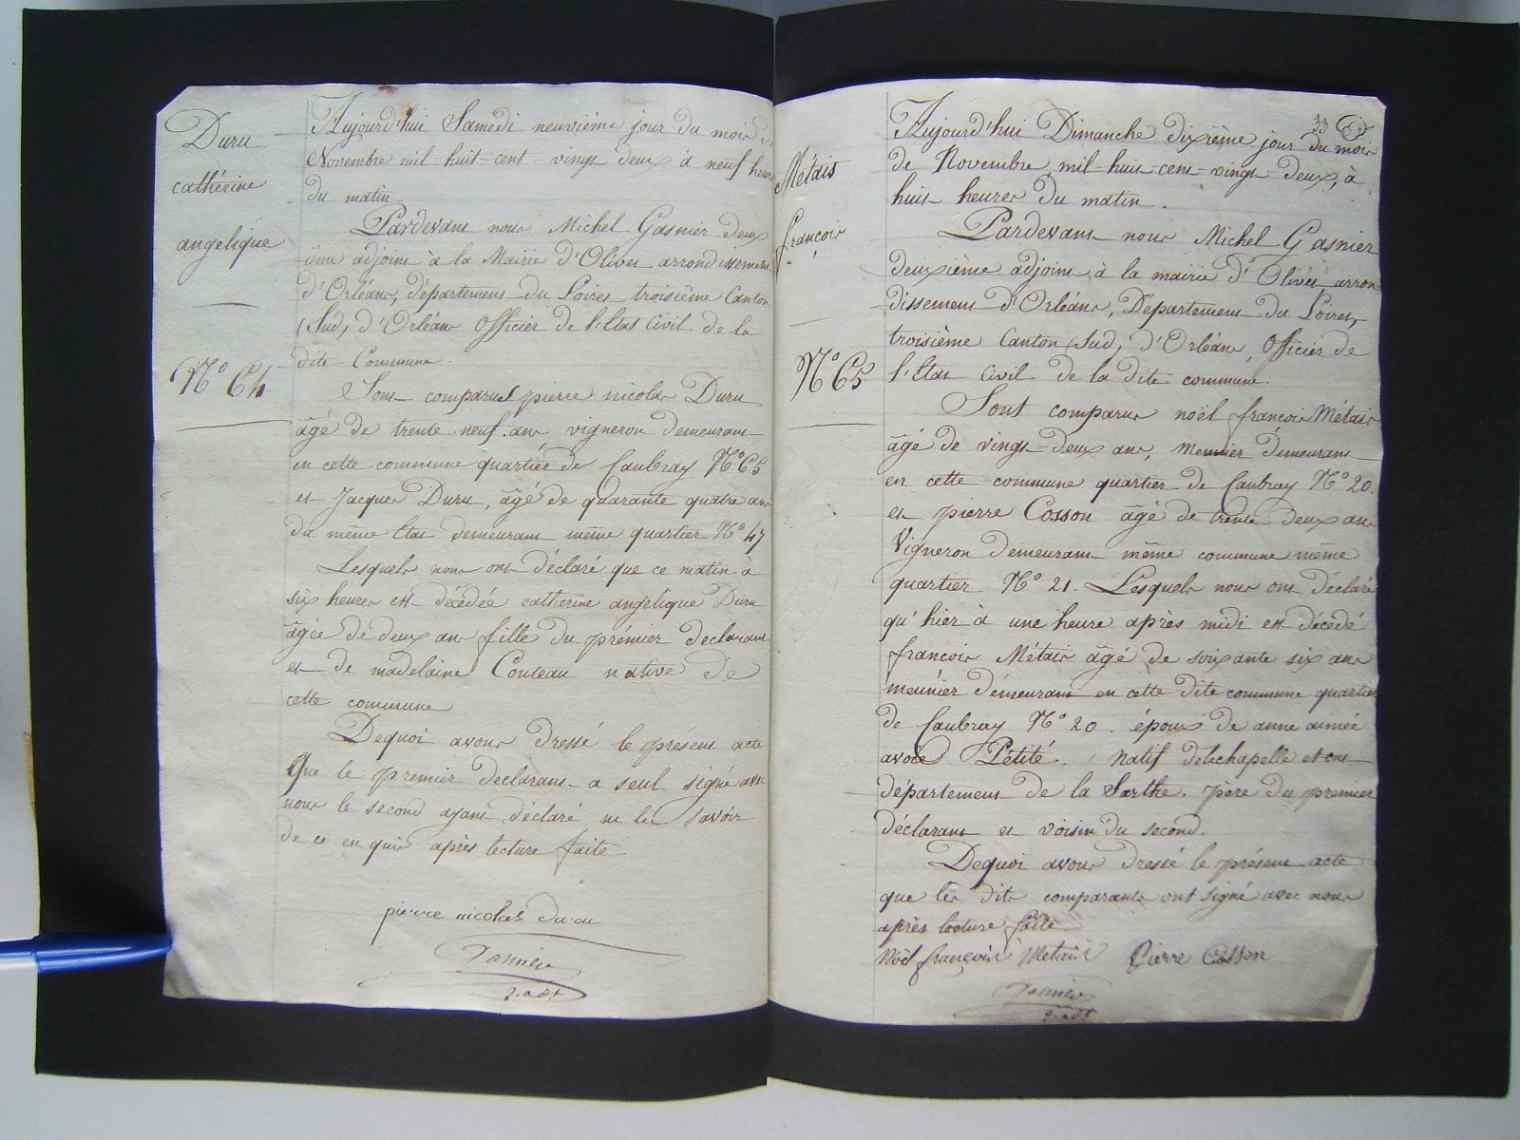 Duru
cathérine
angélique
N° 64
Aujourd'hui Samedi neuvième jour du mois de
Novembre mil-huit-cent-vingt deux à neuf heures
du matin
Pardevant nous Michel Gasnier deux
ième adjoint à la Mairie d'Olivet arrondissement
d'Orléans, département du Loiret troisième Canton
(Sud) d'Orléans Officier de l'Etat Civil de la
dite Commune.
Sont comparus pierre nicolas Duru
âgé de trente neuf ans vigneron demeurant
en cette commune quartier de Caubray N° 65
et Jacques Duru, âgé de quarante quatre ans
du même Etat demeurant même quartier N° 47
Lesquels nous ont déclaré que ce matin à
six heures est décédée catherine angélique Duru
âgée de deux ans fille du prémier declarant
et de madelaine Couteau native de
cette commune
Dequoi avons dressé le présent acte
Que le premier declarant a seul signé avec
nous le second ayant déclaré ne le savoir
de ce enquis après lecture faite
pierre nicolas duru
Gasnier
2. adt
Métais
françois
N° 65
33
Aujourd'hui Dimanche dixième jour du mois
de Novembre, mil-huit-cent-vingt deux, à
huit heures du matin.
Pardevant nous Michel Gasnier
deuxième adjoint à la mairie d'Olivet arron
dissement d'Orléans, Département du Loiret,
troisième Canton (Sud) d'Orléans, Officier de
l'Etat Civil de la dite commune.
Sont comparus noël françois Métais
âgé de vingt-deux ans, meunier demeurant
en cette commune quartier de Caubray N° 20.
et pierre Cosson âgé de trente deux ans
Vigneron demeurant même commune même
quartier N° 21. Lesquels nous ont déclaré
qu'hier à une heure après midi est décédé
francois Métais âgé de soixante six ans
meunier demeurant en cette dite commune quartier
de Caubray N° 20. époux de anne aimée
avoie Pétité. Natif delachapelle
département de la Sarthe. père du premier
déclarant et voisin du second.
Dequoi avons dressé le présent acte
que les dits comparants ont signé avec nous
après lecture faite
Noël françois Metais Pierre Cosson
Gasnier
2. adt